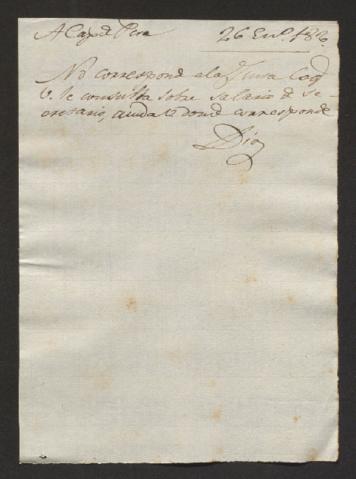 A Cap.n d Pera 26 En.o 182
No corresponde a la Jura lo q.e
V. le consulta sobre salario de Se-
cretario, acuda a donde corresponde
Dio